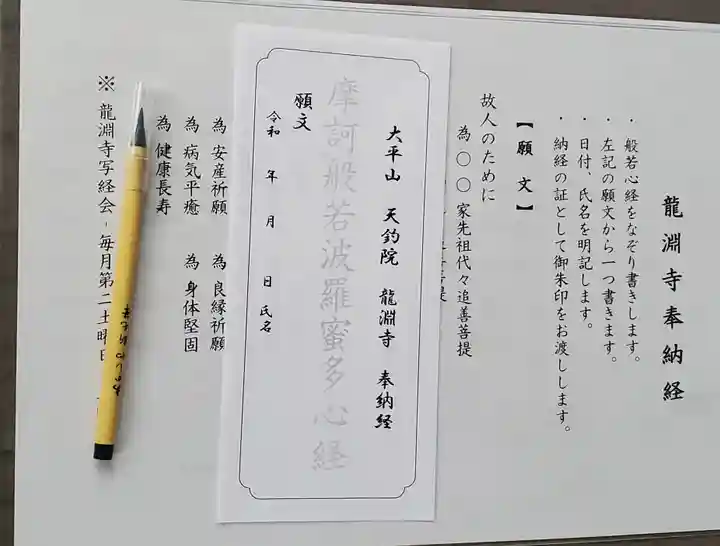 龍淵寺奉納経
・般若心経をなぞり書きします。
・左記の願文から一つ書きます。
・日付、氏名を明記します。
・納経の証として御朱印をお渡しします。
【願文】
故人のために
為 〇〇家先祖代々追善菩提
大平山 天釣院 龍淵寺 奉納経
摩訶般若波羅蜜多心経
願文
令和 年 月 日 氏名
為 安産祈願 為 良縁祈願
為 病気平癒 為 身体堅固
為 健康長寿
※ 龍淵寺写経会・毎月第二土曜日